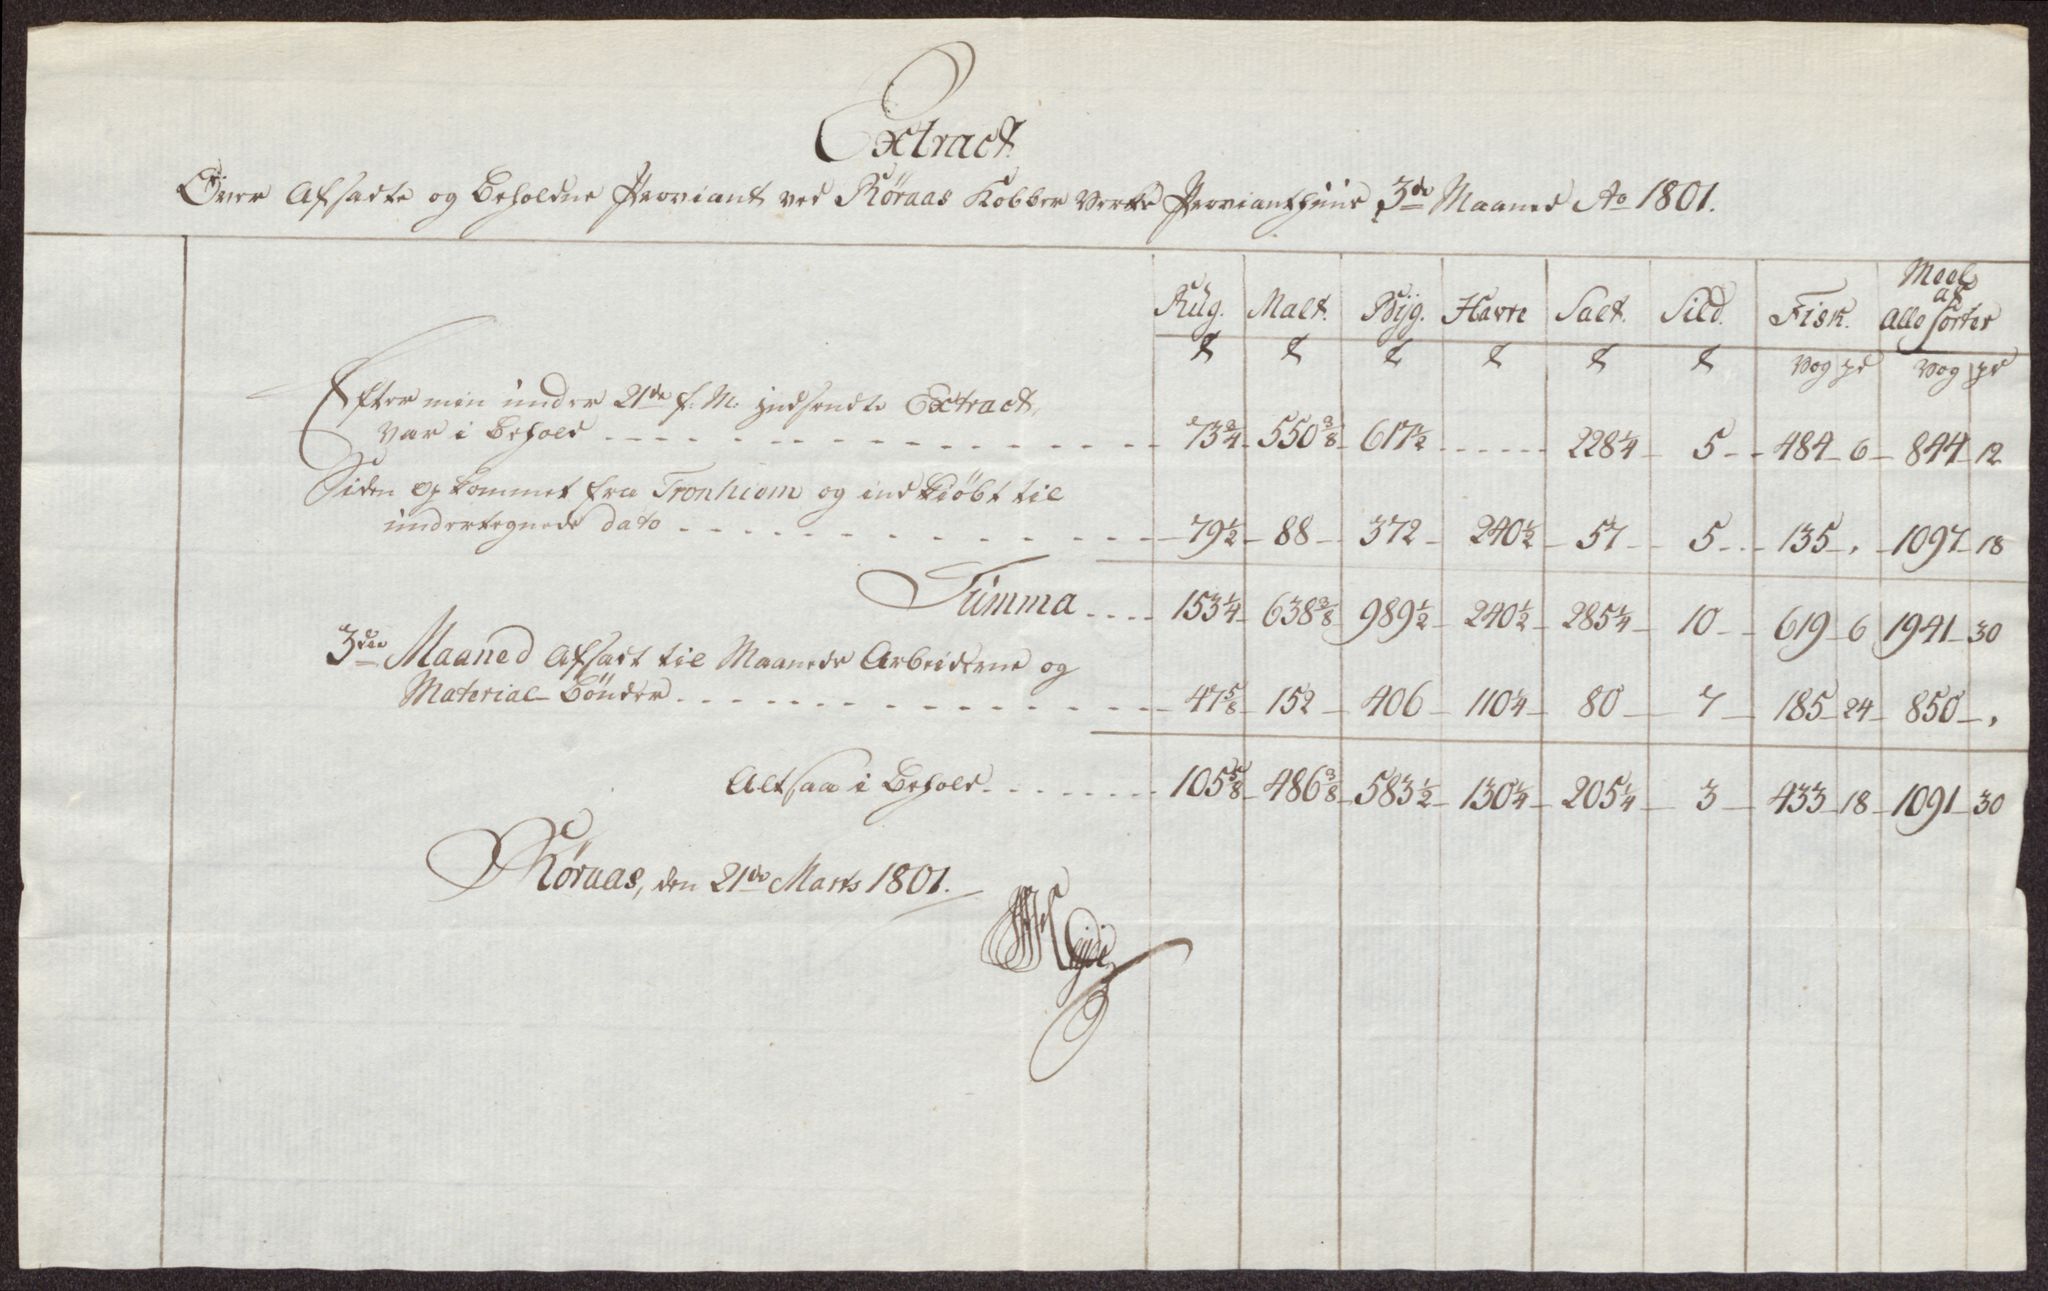 Extract
Over Afsadte og Beholdne Proviant ved Röraas Kobber Verks Provianthuus 3de Maaned Ao 1801.
Rug. Malt. Byg. Havre Salt. Sild. Fisk. Meel af Alle Sorter
Vog pd Vog pd
Efter min under 21de f. M. indsendte Extract,
var i behold 73 3/4 550 3/8 617 1/2 228 1/4 5 484 6 844 12
Siden op kommet fra Tronhiem og indkiøbt til
undertegnede dato 79 1/2 88 372 240 1/2 57 5 135 , 1097 18
Summa 153 1/4 638 3/8 989 1/2 240 1/2 285 1/4 10 619 6 1941 30
3die Maaned Afsadt til Maaneds Arbeiderne og
Material-Bönder 47 5/8 152 406 110 1/4 80 7 185 24 850 ,
Altsaa i Behold 105 5/8 486 3/8 583 1/2 130 1/4 205 1/4 3 433 18 1091 30
Röraas, den 21de Marts 1801.